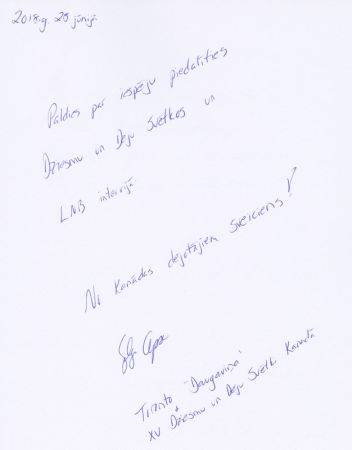 2018.g. 28 jūnijā
Paldies par iespēju piedalīties
Dziesmu un Deju Svētkos un
LNB intervijā
No Kanādas dejotājiem sveiciens!
Toronto "Daugaviņa"
+
XV Dziesmu un Deju Svētki Kanadā